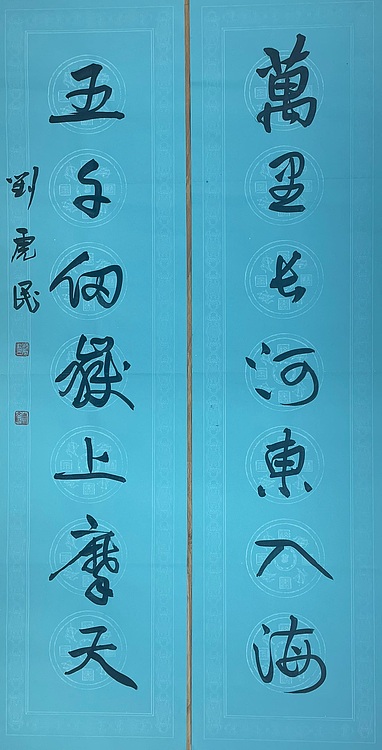 萬里长河東入海
五千仞嶽上摩天
劉虎民